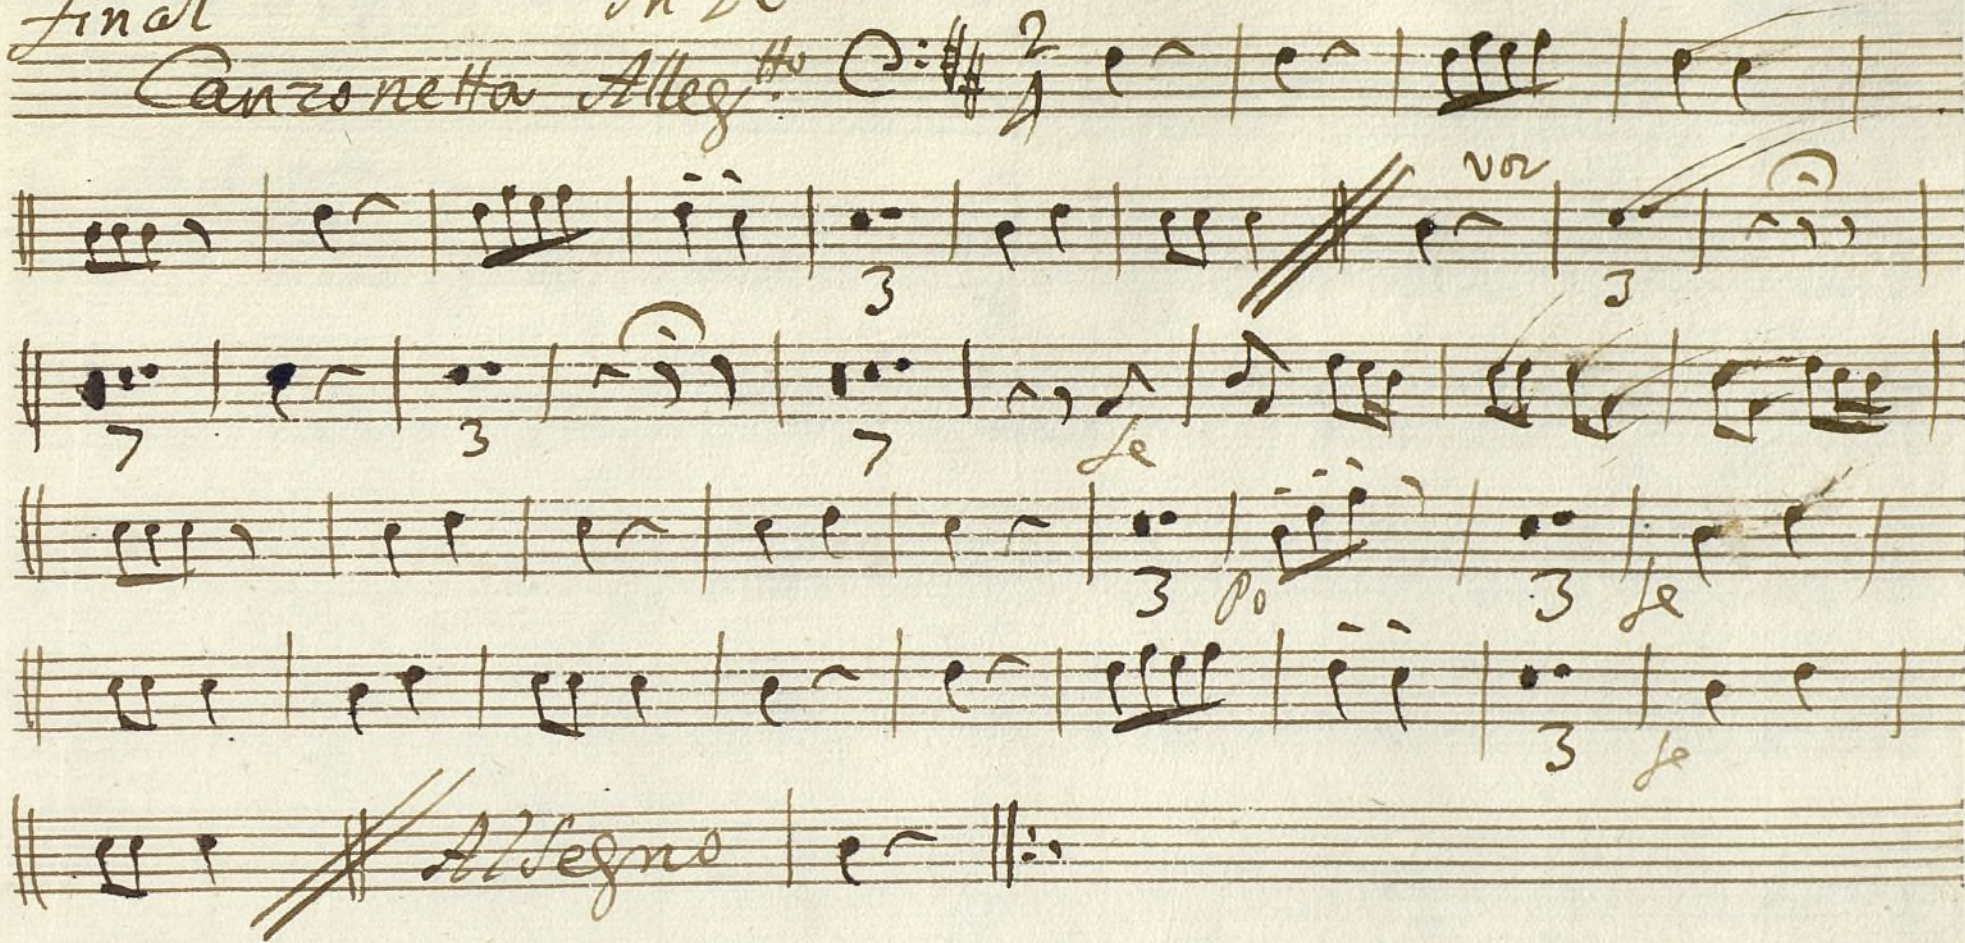 final
Canzonetta Alleg.tto 2 4
voz
3 3
7 3 7 fe
3 Po 3 fe
3 fe
Al Segno